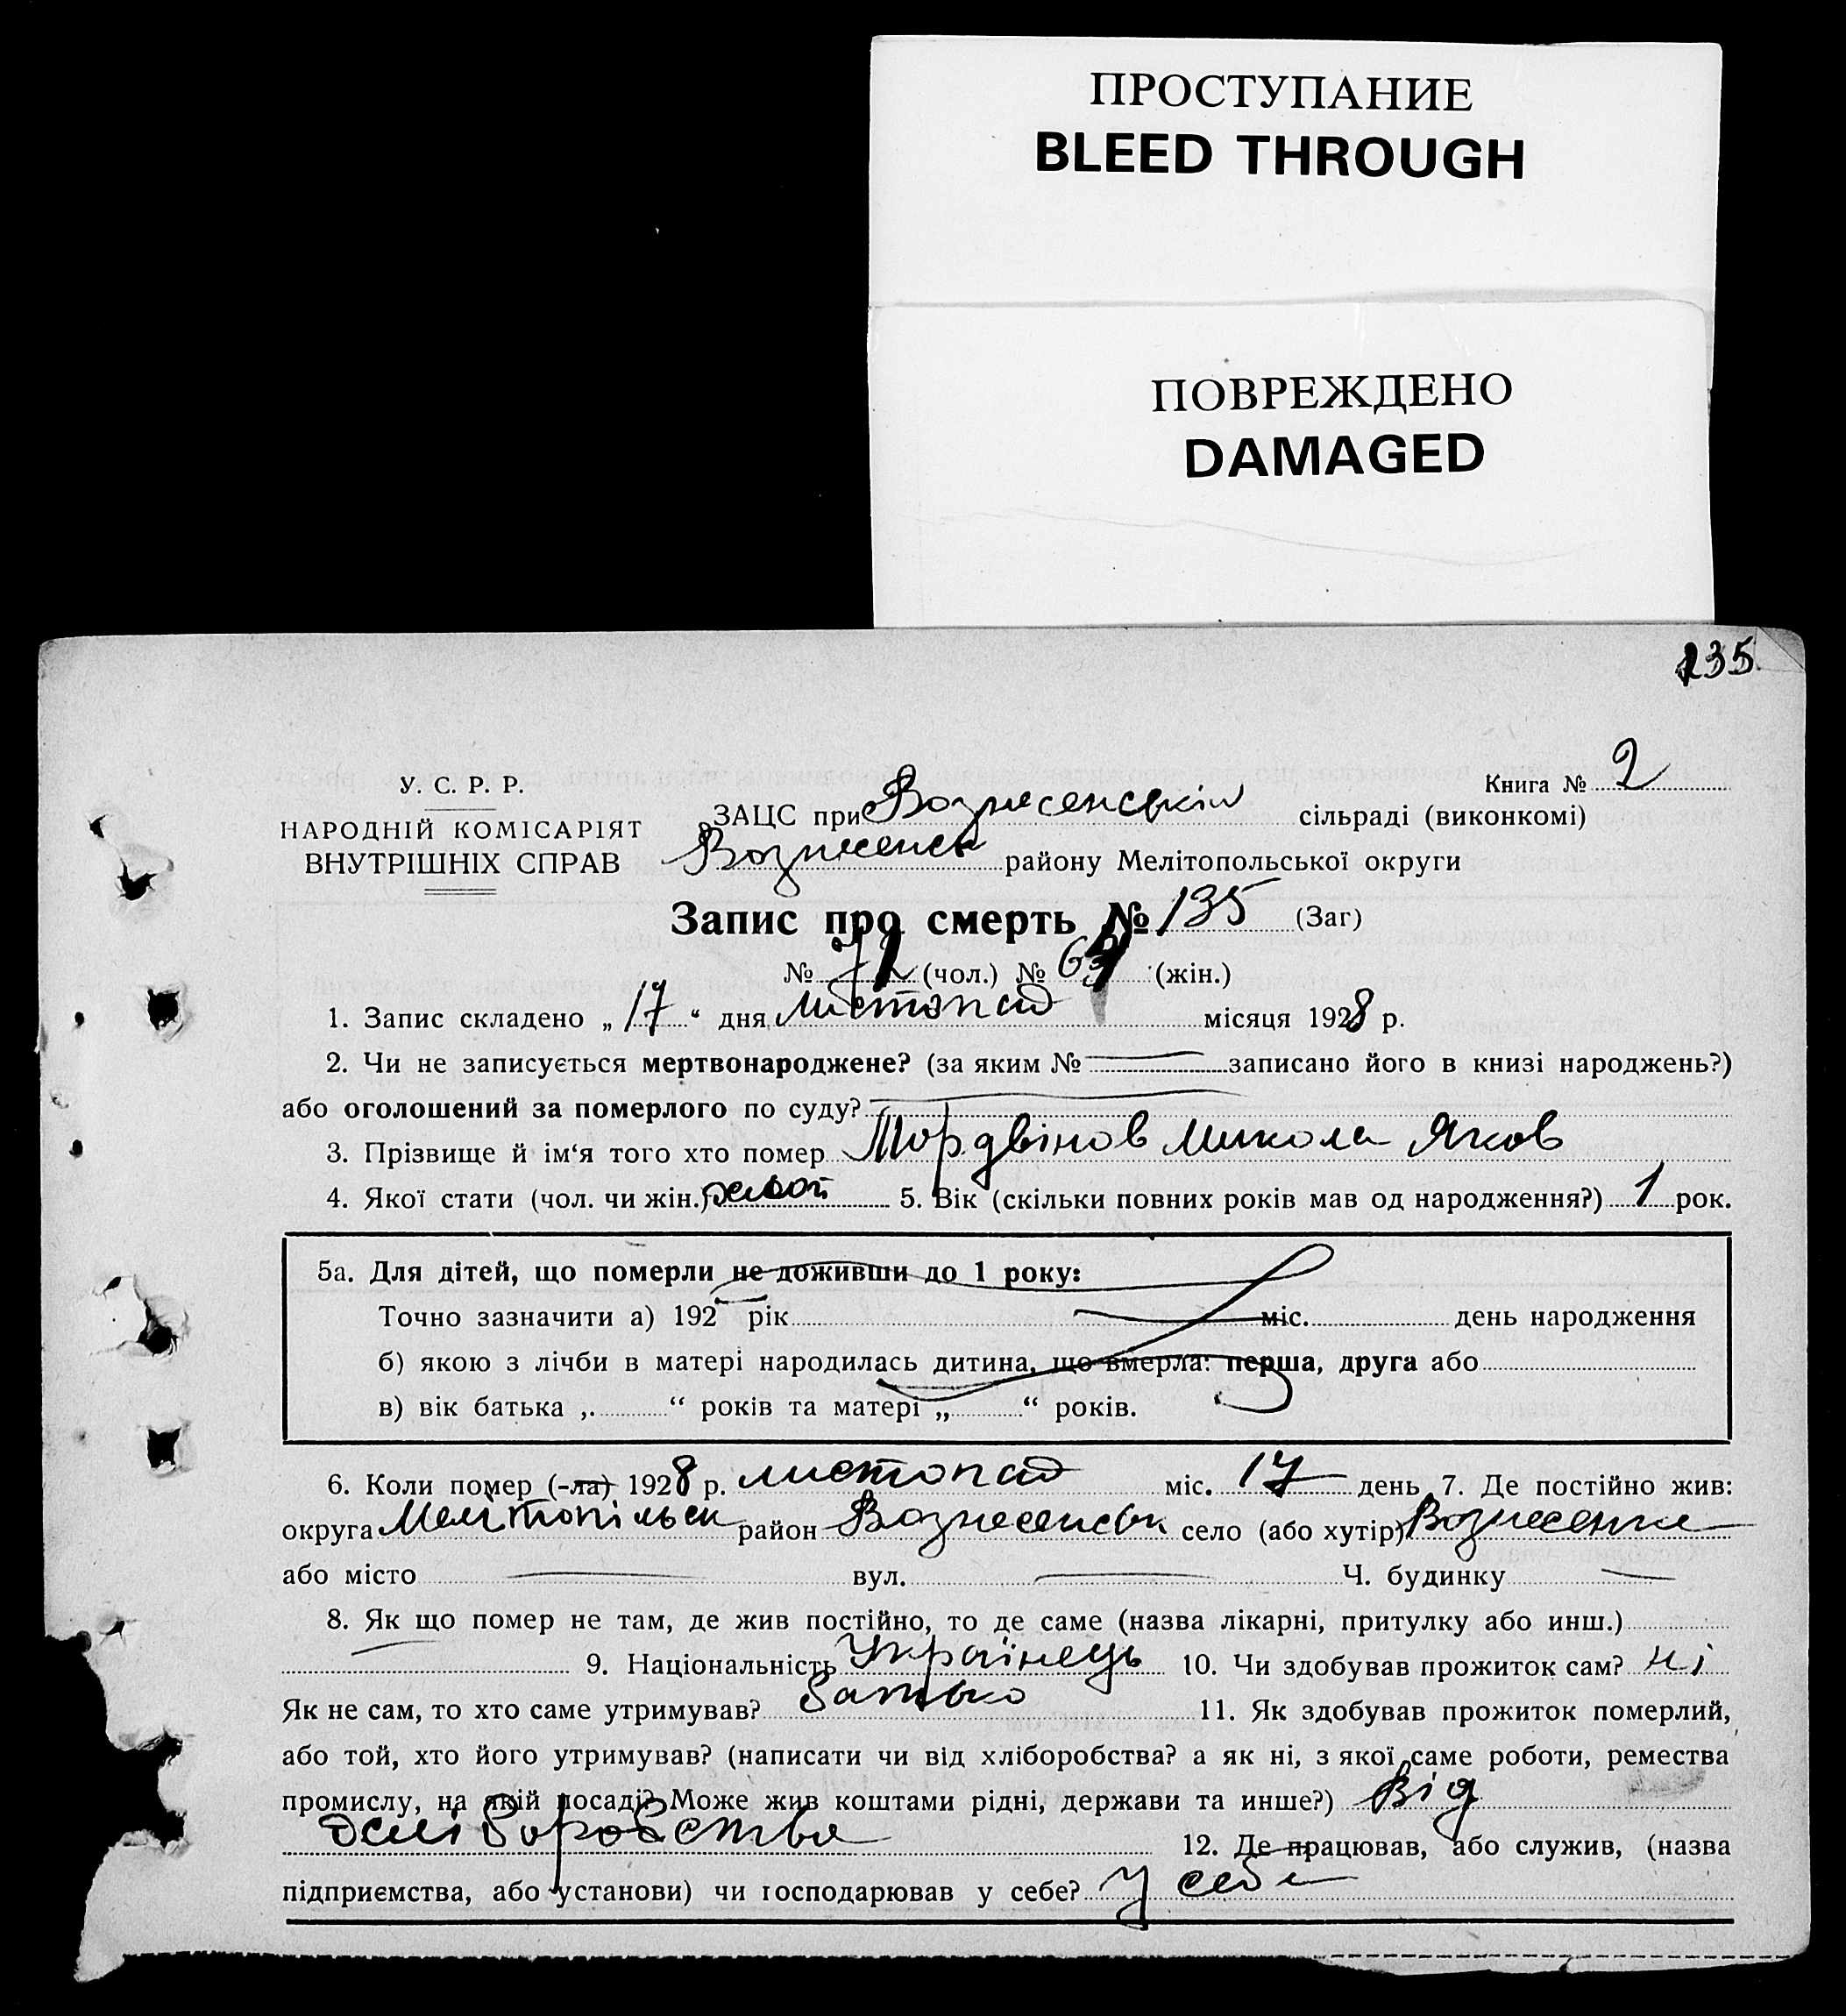 ПРОСТУПАНИЕ
BLEED THROUGH
ПОВРЕЖДЕНО
DAMAGED
135
У. С. Р. Р.
НАРОДНІЙ КОМІСАРІЯТ
ВНУТРІШНІХ СПРАВ
Книга № 2
ЗАЦС при Вознесенській сільраді (виконкомі)
Вознесенськ району Мелітопольської округи
Запис про смерть № 135 (Заг)
№ 71 (чол.) № (жін.)
1. Запис складено „17“ дня листопад місяця 1928 р.
2. Чи не записується мертвонароджене? (за яким № записано його в книзі народжень?)
або оголошений за померлого по суду?
3. Прізвище й ім‘я того хто помер Мордвінов Микола Яков
4. Якої стати (чол. чи жін.) 5. Вік (скільки повних років мав од народження?) 1 рок.
5а. Для дітей, що померли не доживши до 1 року:
Точно зазначити а) 192 рік міс. день народження
б) якою з лічби в матері народилась дитина, що вмерла: перша, друга або
в) вік батька „ “ років та матері „ “ років.
6. Коли помер (-ла) 1928 р. листопад міс. 17 день 7. Де постійно жив:
округа Мелітопільськ район Вознесенськ село (або хутір) Вознесенка
або місто вул. Ч. будинку
8. Як що помер не там, де жив постійно, то де саме (назва лікарні, притулку або инш.)
9. Національність Українець 10. Чи здобував прожиток сам? ні
Як не сам, то хто саме утримував? Батько 11. Як здобував прожиток померлий,
або той, хто його утримував? (написати чи від хліборобства? а як ні, з якої саме роботи, ремества
промислу, на якій посаді? Може жив коштами рідні, держави та инше?) Від
хліборобства 12. Де працював, або служив, (назва
підприємства, або установи) чи господарював у себе? у себе